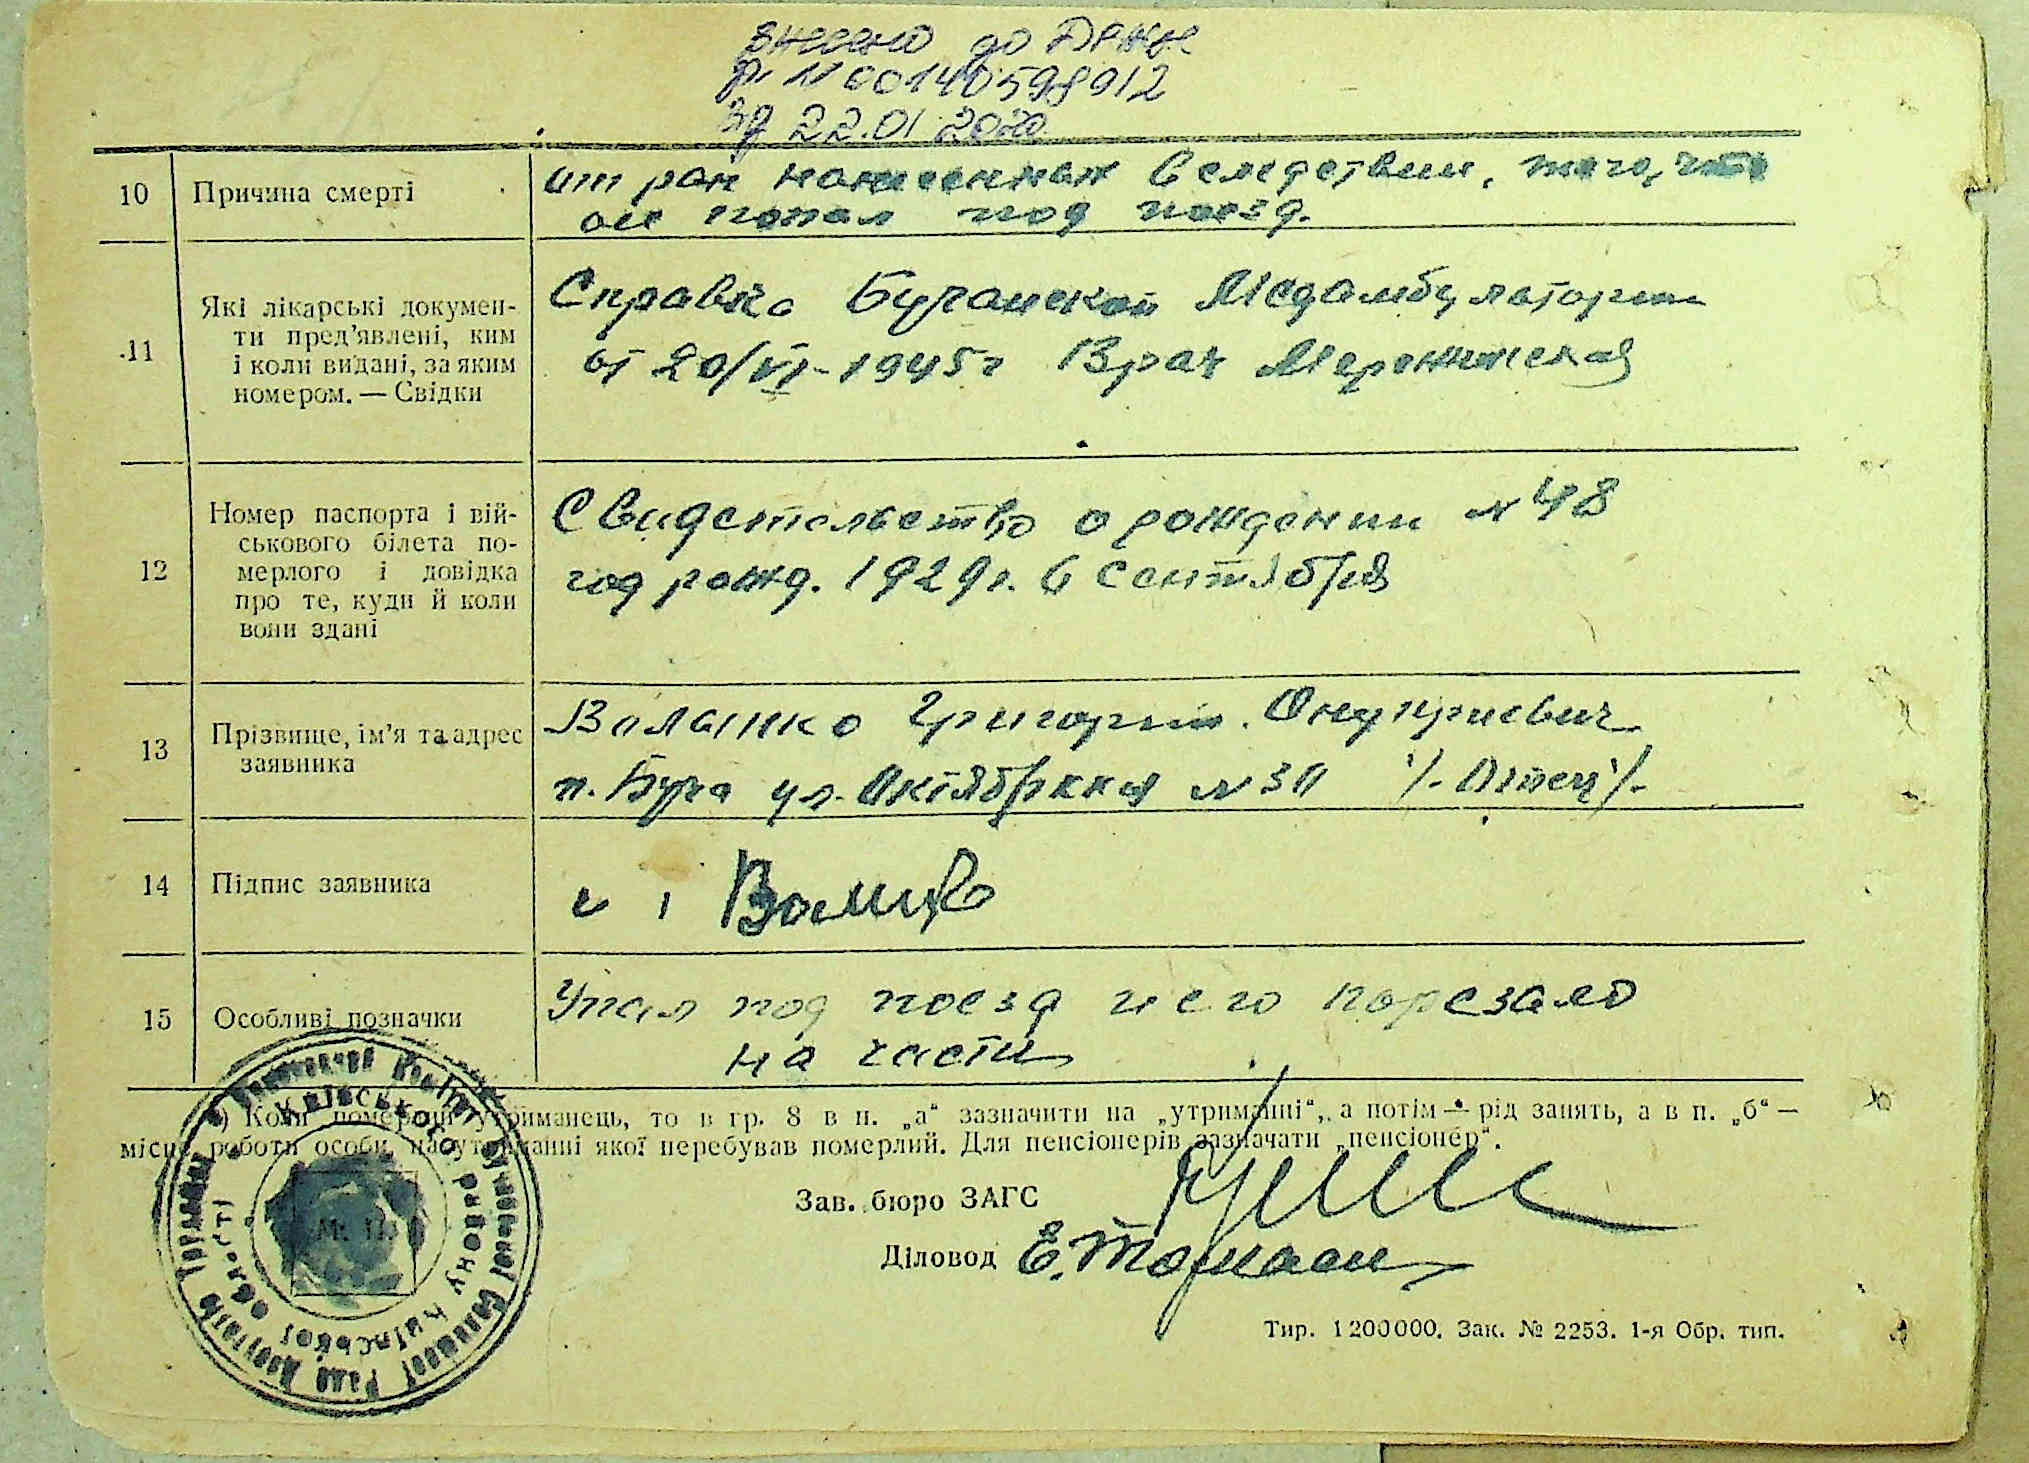 внесено до ДРАЦС
р. № 00140598912
від 22.01 2020
10 Причина смерті
от ран нанесенных вследствии, того, что
он попал под поезд.
11 Які лікарські докумен-
ти пред'явлені, ким
і коли видані, за яким
номером. — Свідки
Справка Бучанской Медамбулатории
от 20/VI-1945г Врач Мережинская
12 Номер паспорта і вій-
ськового білета по-
мерлого і довідка
про те, куди й коли
вони здані
Свидетельство о рождении № 48
год рожд. 1929г. 6 сентября
13 Прізвище, ім'я та адрес
заявника
Григорий Онуприевич
п. Буча ул. Октябрьская № 30 /-Отец/-
14 Підпис заявника
15 Особливі позначки
Упал под поезд и его порезало
на части
) Коли померлий утриманець, то в гр. 8 в п. „а“ зазначити на „утриманні“, а потім — рід занять, а в п. „б“ —
місце роботи особи, на утриманні якої перебував померлий. Для пенсіонерів зазначати „пенсіонер“.
Зав. бюро ЗАГС
Діловод Е.
Тир. 1200000. Зак. № 2253. 1-я Обр. тип.
Виконавчий Комітет Бучанської Селищної Ради Депутатів Трудящих
Київського району Київської області